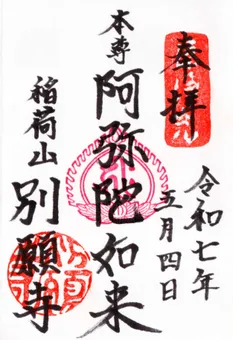 奉拝
令和七年
五月四日
本尊
阿弥陀如来
稲荷山
別願寺